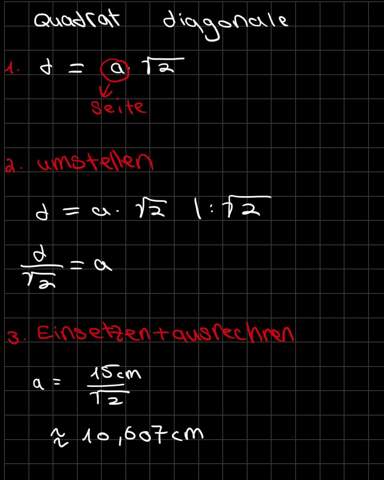 Quadrat diagonale
1. d = a · √2
Seite
2. umstellen
d = a · √2 | : √2
d/√2 = a
3. Einsetzen + ausrechnen
a = 15cm/√2
≈ 10,607cm